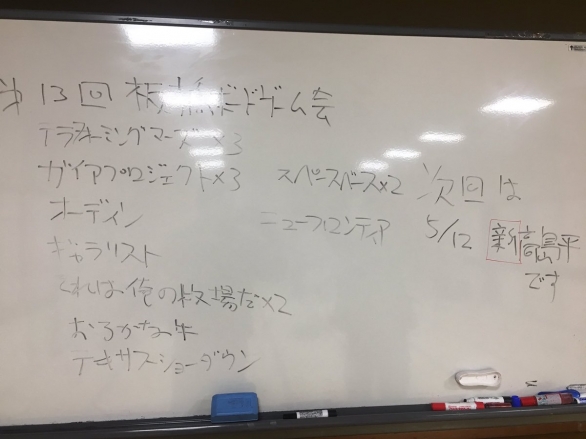 第13回 板橋ボードゲーム会
テラフォーミングマーズ×3
ガイアプロジェクト×3
オーディン
ギャラリスト
くれは俺の牧場だ×2
おろかな牛
テキサスショーダウン
スペースベース×2
ニューフロンティア
次回は
5/12 新高島平
です